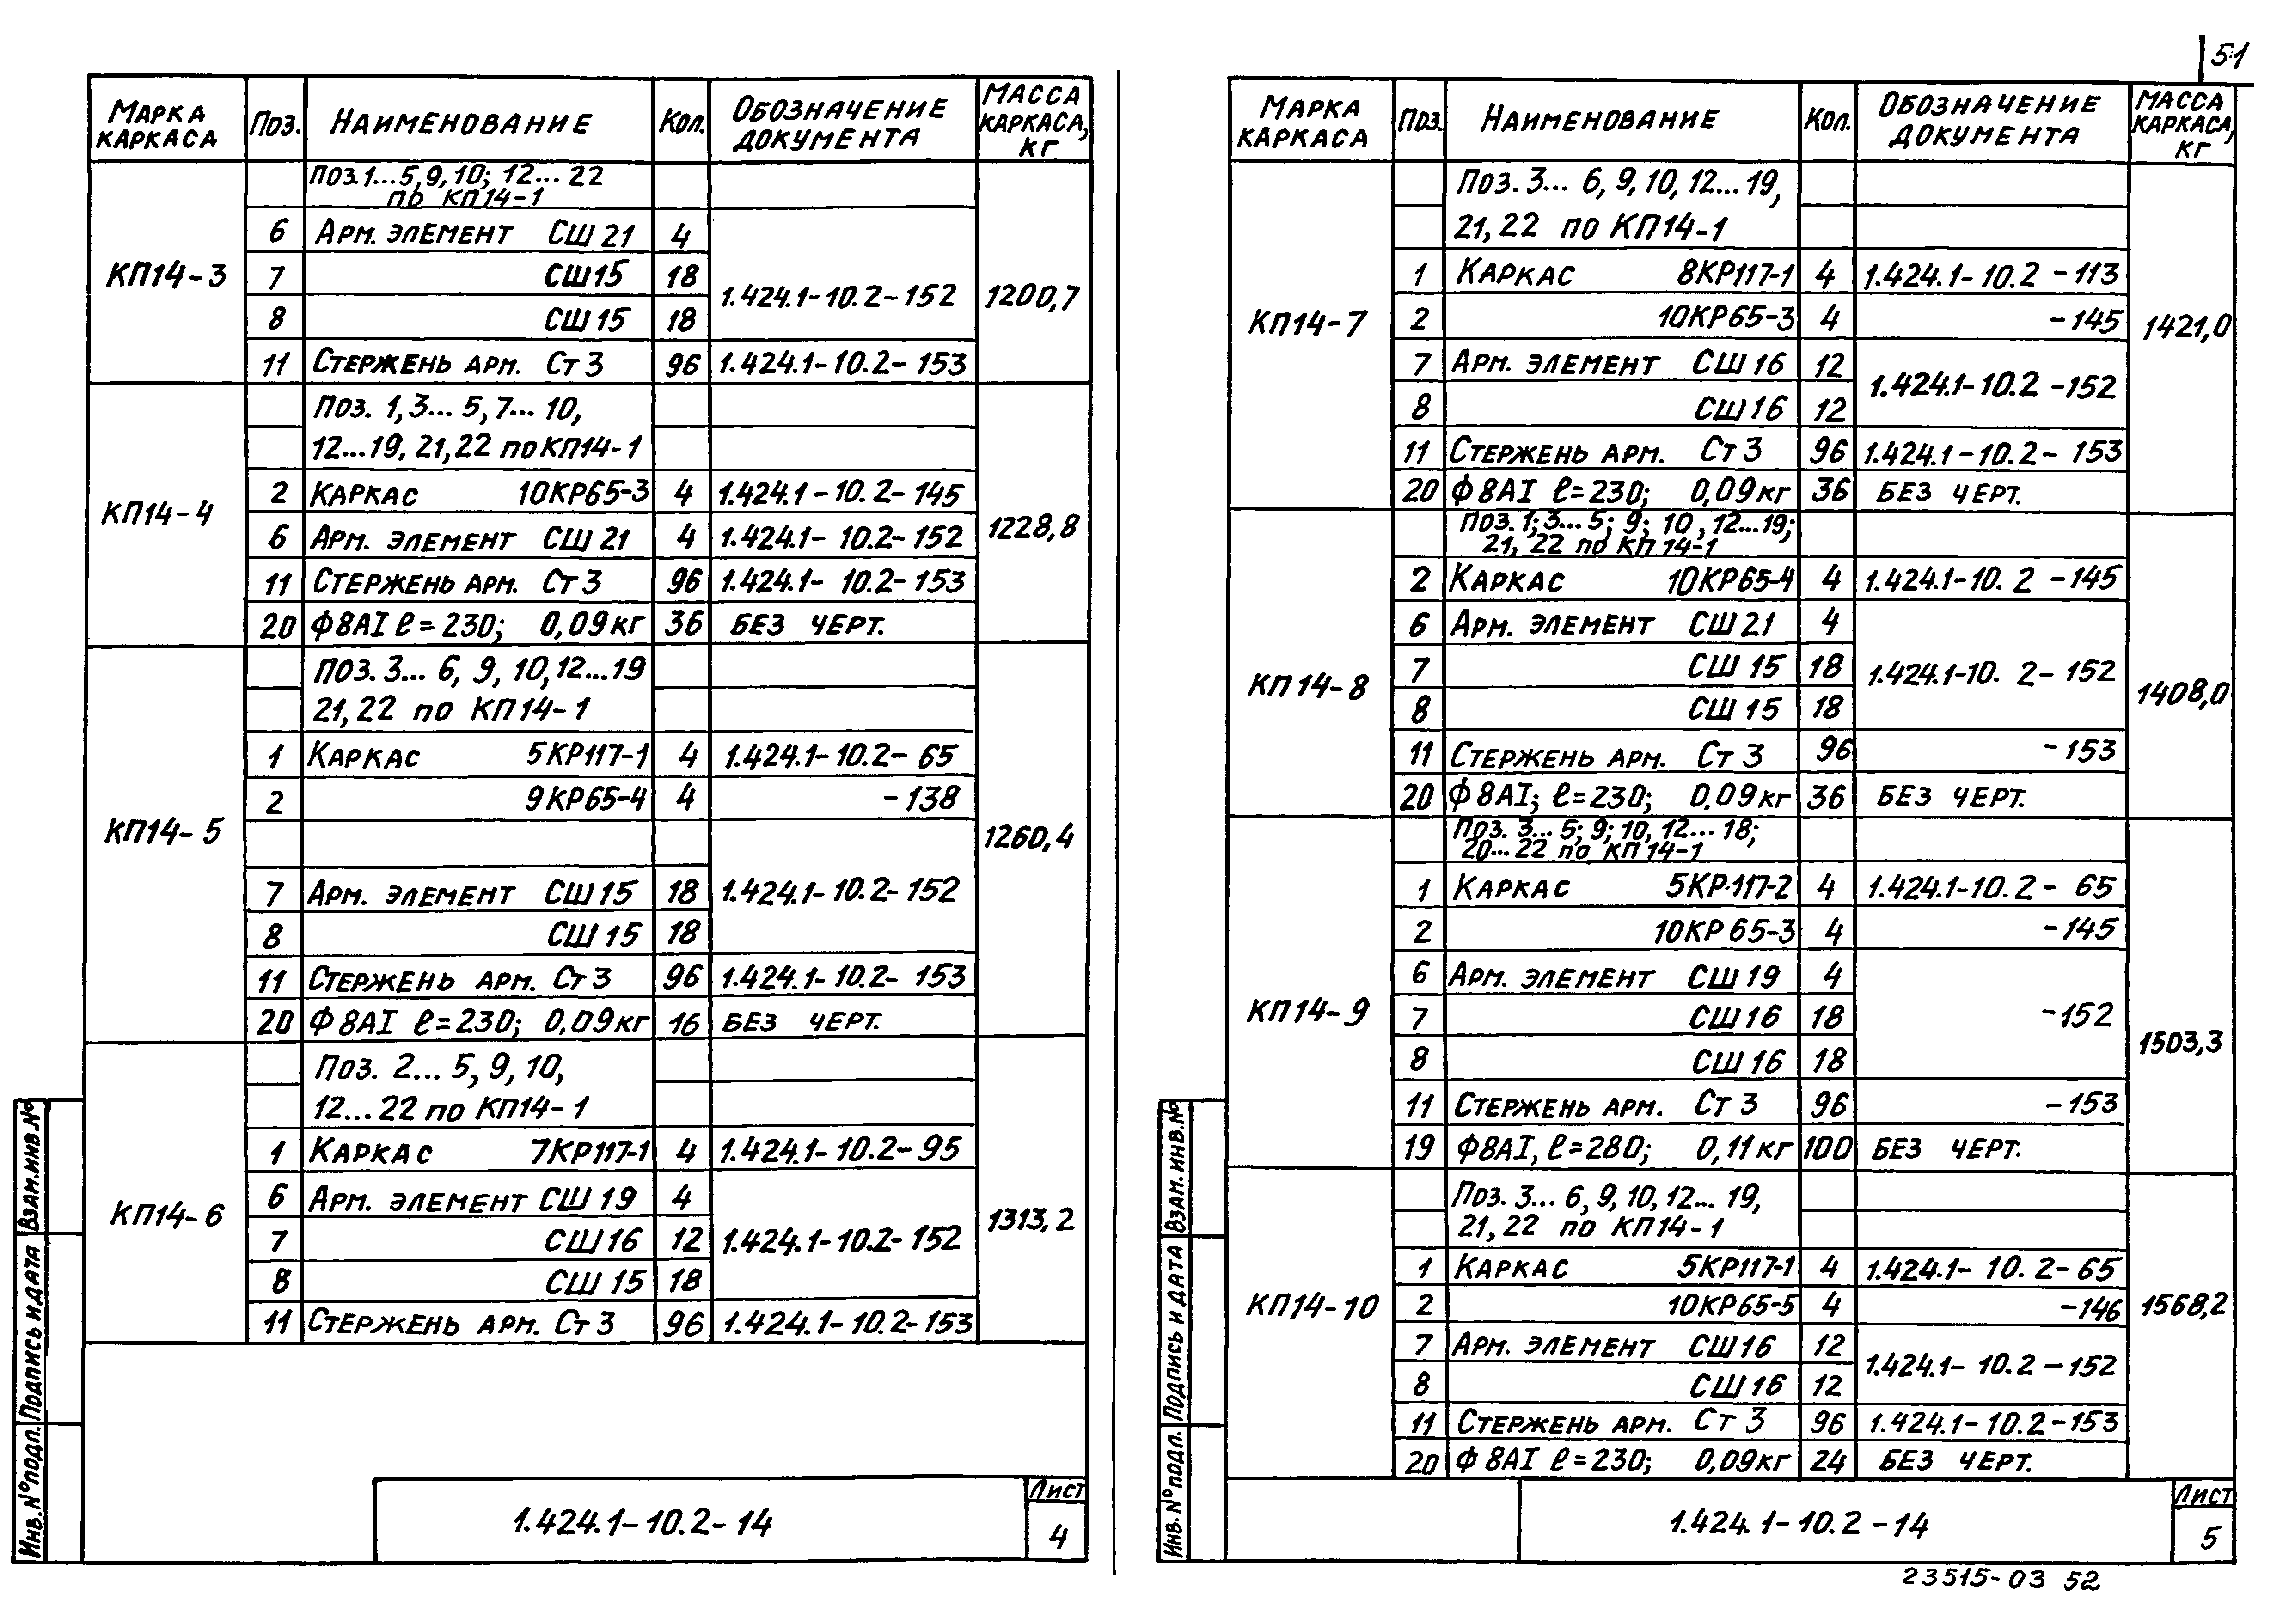 51
МАРКА КАРКАСА | ПОЗ. | НАИМЕНОВАНИЕ | КОЛ. | ОБОЗНАЧЕНИЕ ДОКУМЕНТА | МАССА КАРКАСА, КГ
КП14-3 | 1200,7
ПОЗ.1...5,9,10; 12...22
ПО КП14-1
6 АРМ. ЭЛЕМЕНТ СШ 21 4
7 СШ15 18 1.424.1-10.2-152
8 СШ 15 18
11 СТЕРЖЕНЬ АРМ. Ст 3 96 1.424.1-10.2-153
КП14-4 | 1228,8
ПОЗ. 1,3... 5,7... 10,
12...19, 21,22 ПО КП14-1
2 КАРКАС 10КР65-3 4 1.424.1-10.2-145
6 АРМ. ЭЛЕМЕНТ СШ 21 4 1.424.1-10.2-152
11 СТЕРЖЕНЬ АРМ. Ст 3 96 1.424.1-10.2-153
20 Ф8АI ℓ=230; 0,09кг 36 БЕЗ ЧЕРТ.
КП14-5 | 1260,4
ПОЗ. 3... 6, 9, 10,12...19
21,22 ПО КП14-1
1 КАРКАС 5КР117-1 4 1.424.1-10.2-65
2 9КР65-4 4 -138
7 АРМ. ЭЛЕМЕНТ СШ15 18 1.424.1-10.2-152
8 СШ 15 18
11 СТЕРЖЕНЬ АРМ. Ст 3 96 1.424.1-10.2-153
20 Ф8АI ℓ=230; 0,09кг 16 БЕЗ ЧЕРТ.
КП14-6 | 1313,2
ПОЗ. 2... 5, 9, 10,
12...22 ПО КП14-1
1 КАРКАС 7КР117-1 4 1.424.1-10.2-95
6 АРМ. ЭЛЕМЕНТ СШ 19 4
7 СШ16 12 1.424.1-10.2-152
8 СШ 15 18
11 СТЕРЖЕНЬ АРМ. Ст 3 96 1.424.1-10.2-153
ВЗАМ.ИНВ.№
ПОДПИСЬ И ДАТА
ИНВ.№ПОДЛ.
1.424.1-10.2-14
ЛИСТ
4
МАРКА КАРКАСА | ПОЗ. | НАИМЕНОВАНИЕ | КОЛ. | ОБОЗНАЧЕНИЕ ДОКУМЕНТА | МАССА КАРКАСА, КГ
КП14-7 | 1421,0
ПОЗ. 3... 6, 9, 10, 12...19,
21, 22 ПО КП14-1
1 КАРКАС 8КР117-1 4 1.424.1-10.2-113
2 10КР65-3 4 -145
7 АРМ. ЭЛЕМЕНТ СШ 16 12 1.424.1-10.2-152
8 СШ16 12
11 СТЕРЖЕНЬ АРМ. Ст 3 96 1.424.1-10.2-153
20 Ф8АI ℓ=230; 0,09кг 36 БЕЗ ЧЕРТ.
КП14-8 | 1408,0
ПОЗ. 1; 3... 5; 9; 10, 12...19;
21, 22 ПО КП 14-1
2 КАРКАС 10КР65-4 4 1.424.1-10.2-145
6 АРМ. ЭЛЕМЕНТ СШ 21 4
7 СШ 15 18 1.424.1-10.2-152
8 СШ 15 18
11 СТЕРЖЕНЬ АРМ. Ст 3 96 -153
20 Ф8АI; ℓ=230; 0,09кг 36 БЕЗ ЧЕРТ.
КП14-9 | 1503,3
ПОЗ. 3... 5; 9; 10, 12... 18;
20...22 ПО КП 14-1
1 КАРКАС 5КР-117-2 4 1.424.1-10.2-65
2 10КР65-3 4 -145
6 АРМ. ЭЛЕМЕНТ СШ 19 4
7 СШ16 18 -152
8 СШ 16 18
11 СТЕРЖЕНЬ АРМ. Ст 3 96 -153
19 Ф8АI, ℓ=280; 0,11кг 100 БЕЗ ЧЕРТ.
КП14-10 | 1568,2
ПОЗ. 3... 6, 9, 10, 12... 19,
21, 22 ПО КП14-1
1 КАРКАС 5КР117-1 4 1.424.1-10.2-65
2 10КР65-5 4 -146
7 АРМ. ЭЛЕМЕНТ СШ16 12 1.424.1-10.2-152
8 СШ16 12
11 СТЕРЖЕНЬ АРМ. Ст 3 96 1.424.1-10.2-153
20 Ф 8АI ℓ=230; 0,09кг 24 БЕЗ ЧЕРТ.
ВЗАМ.ИНВ.№
ПОДПИСЬ И ДАТА
ИНВ.№ПОДЛ.
1.424.1-10.2-14
ЛИСТ
5
23515-03 52